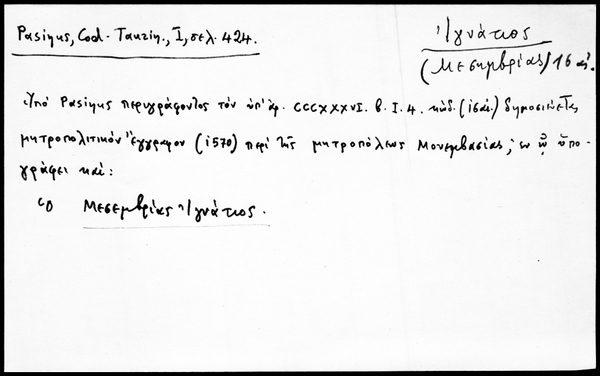 Pasinus, Cod. Taurin., I, σελ. 424.
Ἰγνάτιος
(Μεσημβρίας) 16 αἰ.
Ὑπὸ Pasinus περιγράφοντος τὸν ὑπ' ἀρ. CCCXXXVI. b. I. 4. κώδ. (ις αἰ.) δημοσιεύεται
μητροπολιτικὸν ἔγγραφον (1570) περὶ τῆς μητροπόλεως Μονεμβασίας, ἐν ᾧ ὑπο-
γράφει καὶ:
Μεσεμβρίας Ἰγνάτιος.